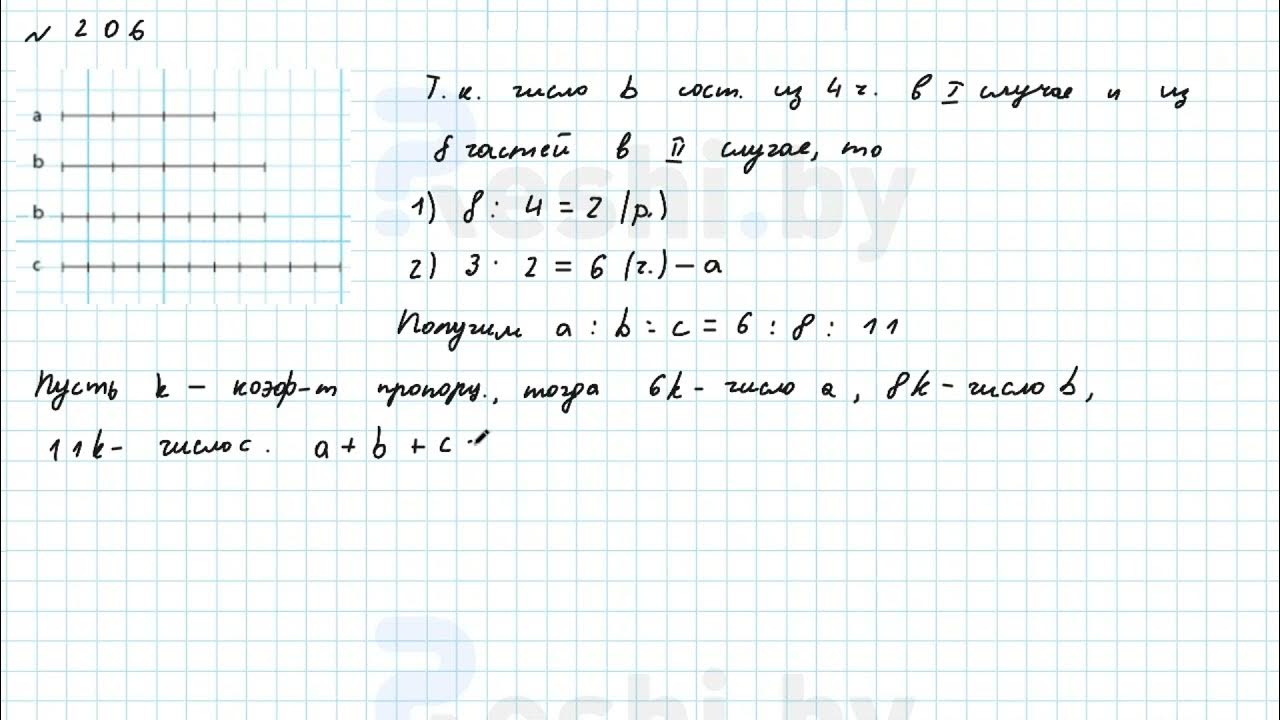 № 206
a
b
b
c
Т. к. число b сост. из 4 ч. в I случае и из
8 частей в II случае, то
1) 8 : 4 = 2 (р.)
2) 3 · 2 = 6 (ч.) – a
Получим a : b : c = 6 : 8 : 11
Пусть k – коэф-т пропорц., тогда 6k - число a, 8k - число b,
11k - число c. a + b + c
eshi.by
eshi.by